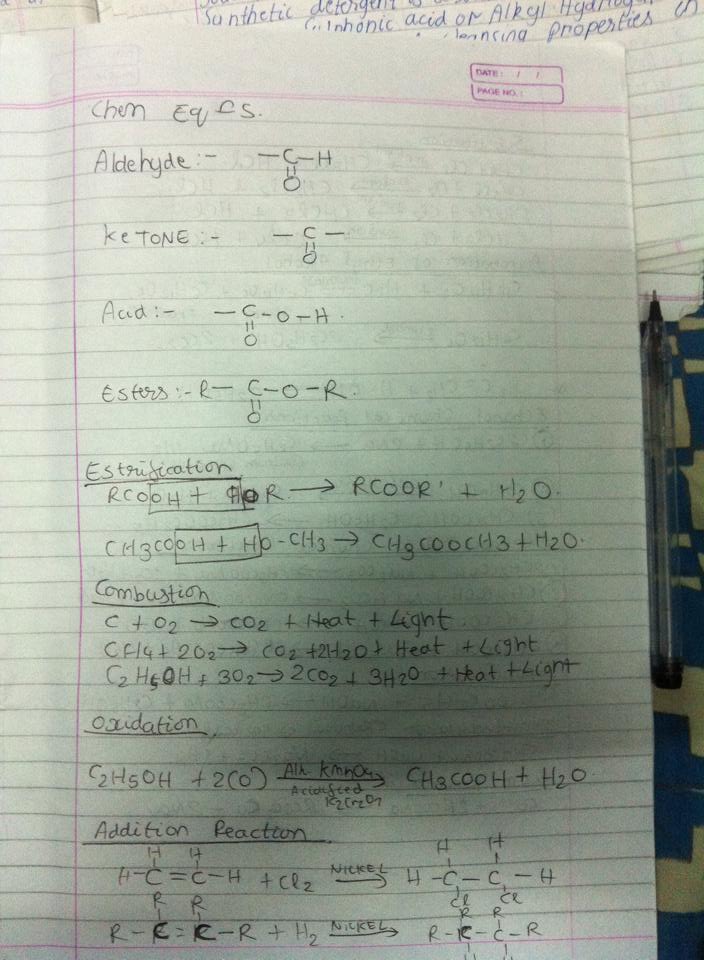 Synthetic detergent
Sulphonic acid or Alkyl Hydrogen
cleansing properties in
DATE: / /
PAGE NO.:
Chem Eqns.
Aldehyde :- –C–H
||
O
KeTONE :- –C–
||
O
Acid :- –C–O–H.
||
O
Esters :- R–C–O–R.
||
O
Estrification
RCOOH + HOR → RCOOR' + H2O.
CH3COOH + HO-CH3 → CH3COOCH3 + H2O.
Combustion
C + O2 → CO2 + Heat + Light
CH4 + 2O2 → CO2 + 2H2O + Heat + Light
C2H5OH + 3O2 → 2CO2 + 3H2O + Heat + Light
Oxidation
C2H5OH + 2(O) Alk. KmnO4 → CH3COOH + H2O.
Acidified
K2Cr2O7
Addition Reaction
H H H H
H-C=C-H + Cl2 NICKEL → H-C-C-H
Cl Cl
R R R R
R-C=C-R + H2 NICKEL → R-C-C-R